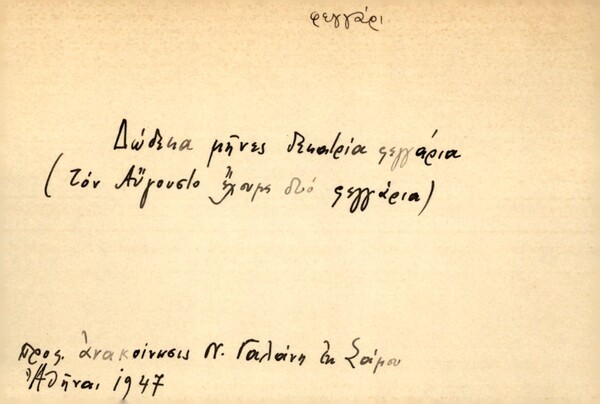 φεγγάρι.
Δώδεκα μῆνες δεκατρία φεγγάρια
(τόν Αὔγουστο ἔχουμε δυό φεγγάρια)
προφ. ἀνακοίνωσις Ν. Γαλάνη ἐκ Σάμου
Ἀθῆναι 1947